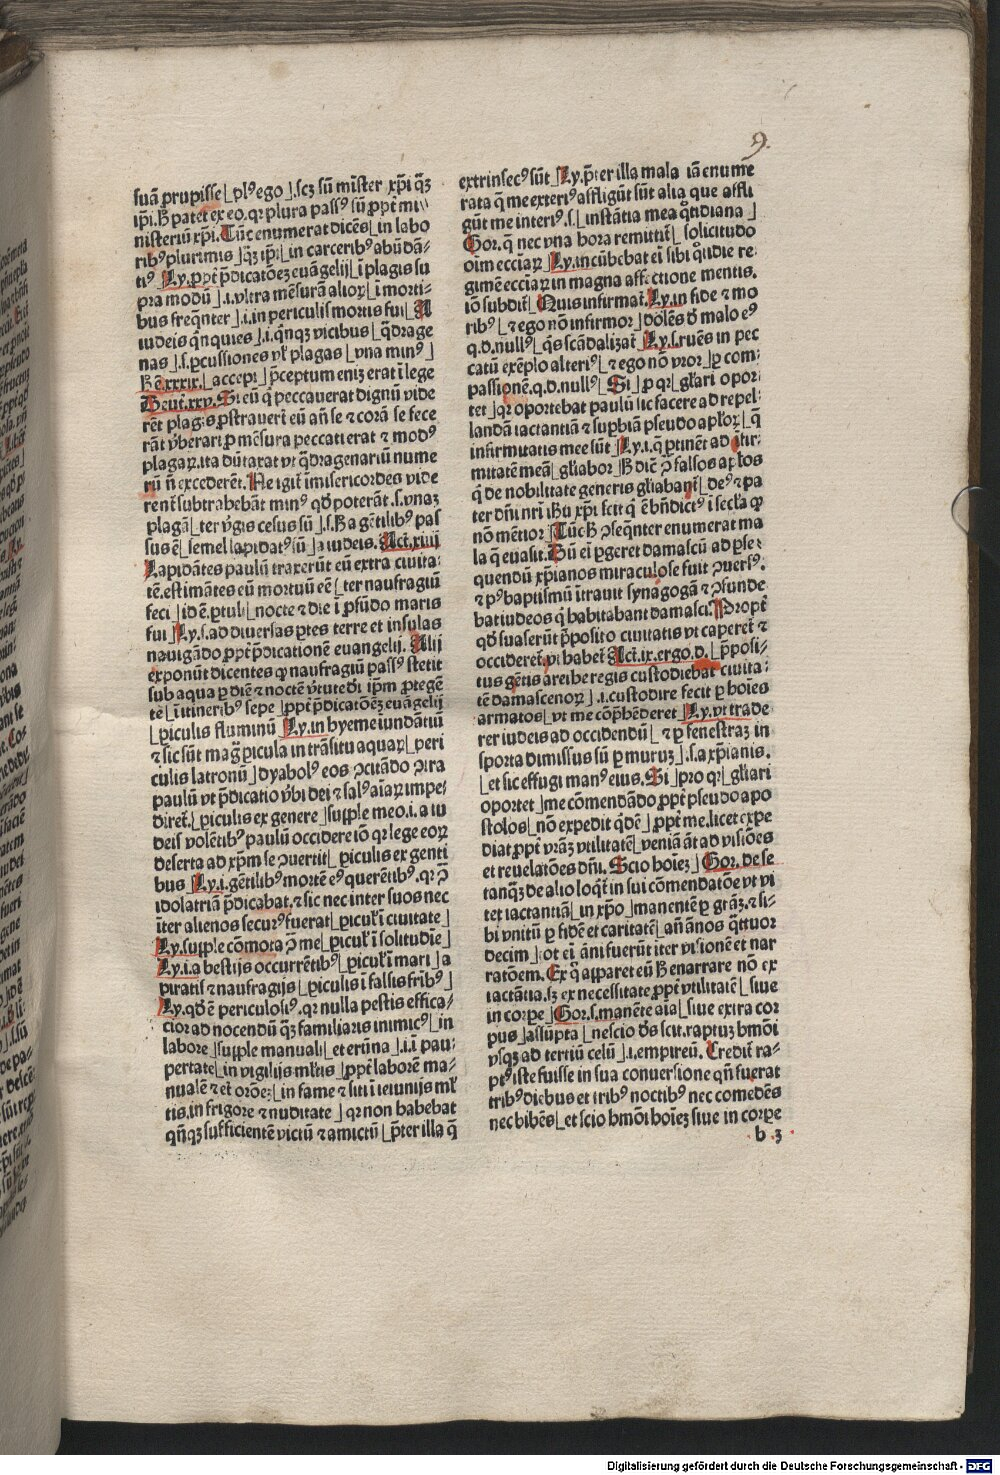 9.
suā prupisse ⌊plꝰ ego⌋ .scꝫ sū mīster xp̄i q̄ꝫ
ip̄i. B patet ex eo. qꝛ plura passꝰ sū ꝓpt̄ mi
nisteriū xp̄i. Tūc enumerat dicēs ⌊in labo
ribꝰ plurimis⌋ q̄ꝫ ip̄i ⌊in carceribꝰ abūdā-
tiꝰ⌋ Ly. ꝓpt̄ p̄dicatōeꝫ euāgelij ⌊ī plagis su
pra modū⌋ .i. vltra mēsurā alioꝝ ⌊i morti-
bus freq̄nter⌋ .i. in periculis mortis fui ⌊A
iudeis q̄nquies⌋ .i. q̄nqꝫ vicibus ⌊q̄drage
nas⌋ .s. ꝑcussiones vl̄ plagas ⌊vna minꝰ⌋
B ē .xxxix. ⌊accepi⌋ p̄ceptum eniꝫ erat ī lege
Deut̄. xxv. Si eū q̄ peccauerat dignū vide
rēt plagis ꝓstrauerīt eū añ se ⁊ corā se fece
rāt v̄berari ꝓ mēsura peccati erat ⁊ modꝰ
plagaꝝ. ita dūtaxat vt q̄dragenariū nume
rū n̄ excederēt. Ne igit̄ imisericordes vide
rent̄ subtrabebāt minꝰ qd̓ poterāt .s. vnaꝫ
plagā ⌊ter v̓gis cesus sū⌋ .s. B a gētilibꝰ pas
sus ē ⌊semel lapidatꝰ sū⌋ a iudeis. Act̄. xiiij
Lapidātes paulū traxerūt eū extra ciuita-
tē. estimātes eū mortuū eē ⌊ter naufragiū
feci⌋ id ē. ꝑtuli ⌊nocte ⁊ die ī ꝓfūdo maris
fui⌋ Ly. s. ad diuersas ꝑtes terre et insulas
nauigādo ꝓpt̄ p̄dicationē euangelij. Alij
exponūt dicentes ꝙ naufragiū passꝰ stetit
sub aqua ꝑ diē ⁊ noctē v̓tute dī ip̄m ꝓtegē
te ⌊ī itineribꝰ sepe⌋ ꝓpt̄ p̄dicatōeꝫ euāgelij
⌊piculis fluminū⌋ Ly. in byeme iundātiū
⁊ sic sūt mag̓ ꝑicula in trāsitu aquaꝝ ⌊peri
culis latronū⌋ dyabolꝰ eos ꝯcitādo ꝯtra
paulū vt p̄dicatio v̓bi dei ⁊ salꝰ aīaꝝ impe-
diret̄. ⌊ꝑiculis ex genere⌋ supple meo .i. a iu
deis volētibꝰ paulū occidere iō qꝛ lege eoꝝ
deserta ad xp̄m se ꝯuertit ⌊ꝑiculis ex genti
bus⌋ Ly. i. gētilibꝰ mortē eꝰ querētibꝰ. qꝛ ꝯ̄
idolatriā p̄dicabat. ⁊ sic nec inter suos nec
īter alienos securꝰ fuerat ⌊ꝑicul̓ ī ciuitate⌋
Ly. supple cōmota ꝯ̄ me ⌊ꝑicul̓ ī solitudīe⌋
Ly. i. a bestijs occurrētibꝰ ⌊ꝑicul̓ ī mari⌋ a
piratis ⁊ naufragijs ⌊ꝑiculis ī falsis fr̄ibꝰ⌋
Ly. qd̓ ē periculosiꝰ. qꝛ nulla pestis effica-
cior ad nocendū q̄ꝫ familiaris inimicꝰ ⌊in
labore⌋ supple manuali ⌊et erūna⌋ .i. ī pau-
pertate ⌊in vigilijs ml̓tis⌋ ꝓpt̄ laborē ma-
nualē ⁊ et̄ orōeꝫ ⌊in fame ⁊ siti ī ieiunijs ml̓
tis. in frigore ⁊ nuditate⌋ qꝛ non babebat
qn̄qꝫ sufficientē victū ⁊ amictū ⌊p̄ter illa q̄
extrinsecꝰ sūt⌋ Ly. p̄ter illa mala iā enume
rata q̄ me exteriꝰ affligūt sūt alia que affli
gūt me interiꝰ .s. ⌊instātia mea q̓tidiana⌋
Gor. q̄ nec vna bora remittit̄ ⌊solicitudo
oīm ecciaꝝ⌋ Ly. incūbebat eī sibi q̓tidie re
gimē ecciaꝝ in magna affectione mentis.
iō subdit̄ ⌊Quis infirmat̄. Ly. in fide ⁊ mo
ribꝰ ⌊⁊ ego nō infirmor⌋ dolēs d̓ malo eꝰ
q.d. nullꝰ ⌊q̓s scādalizat̄⌋ Ly. s. ruēs in pec
catū exēplo alteriꝰ ⌊⁊ ego nō vror⌋ ꝑ com-
passionē. q.d. nullꝰ ⌊Si⌋ ꝑ qꝛ ⌊gl̓ari opor-
tet⌋ qꝛ oportebat paulū sic facere ad repel-
landā iactantiā ⁊ supbiā pseudo apl̓oꝝ ⌊q̄
infirmitatis mee sūt⌋ Ly. i. q̄ ꝑtinēt ad ītir-
mitatē meā ⌊gl̓iabor⌋ B diē ꝯ̄ falsos apl̓os
q̓ de nobilitate generis gl̓iabant̄ ⌊deꝰ ⁊ pa
ter dn̄i nr̄i iħu xp̄i scit q̓ ē bn̄dictꝰ ī secl̓a ꝙ
nō mētior⌋ Tūc B ꝯseq̄nter enumerat ma
la q̄ euasit. Dū ei ꝑgeret damascū ad ꝑse-
quendū xp̄ianos miraculose fuit ꝯuersꝰ.
⁊ pꝰ baptismū itrauit synagogā ⁊ ꝯfunde
bat iudeos q̓ babitabant damasci. Propt̄
qd̓ suaserūt p̄posito ciuitatis vt caperet̄ ⁊
occideret̄. vt babet̄ Act̄. ix. ergo. d. ⌊p̄posi-
tus gētis areibe regis custodiebat ciuita-
tē damascenoꝝ⌋ .i. custodire fecit ꝑ boīes
armatos ⌊vt me cōpbēderet⌋ Ly. vt trade
rer iudeis ad occidendū ⌊⁊ ꝑ fenestraꝫ in
sporta dimissus sū ꝑ muruꝫ⌋ .s. a xp̄ianis.
⌊et sic effugi manꝰ eius. Si⌋ pro qꝛ ⌊gl̓iari
oportet⌋ me cōmendādo ꝓpt̄ pseudo apo
stolos ⌊nō expedit qd̓ē⌋ ꝓpt̄ me. licet expe
diat ꝓpt̄ vr̄aꝫ vtilitatē ⌊veniā āt ad visiōes
et reuelatōes dn̄i. Scio boīeꝫ⌋ Gor. de se
tanq̄ꝫ de alio loqt̄ in sui cōmendatōe vt vi
tet iactantiā ⌊in xp̄o⌋ manentē ꝑ grāꝫ. ⁊ si-
bi vnitū ꝑ fidē et caritatē ⌊añ ānos q̄ttuor
decim⌋ tot eī āni fuerūt iter visionē et nar
ratōem. Ex q̓ apparet eū B enarrare nō ex
iactātia. sꝫ ex necessitate ꝓpt̄ vtilitatē ⌊siue
in corpe⌋ Gor. s. manēte aīa ⌊siue extra cor
pus⌋ assūpta ⌊nescio d̓s scit. raptuꝫ bmōi
vsqꝫ ad tertiū celū⌋ .i. empireū. Credit̄ ra-
ptꝰ iste fuisse in sua conuersione qn̄ fuerat
tribꝰ diebus et tribꝰ noctibꝰ nec comedēs
nec bibēs ⌊et scio bmōi boīeꝫ siue in corpe
b 3
Digitalisierung gefördert durch die Deutsche Forschungsgemeinschaft - DFG